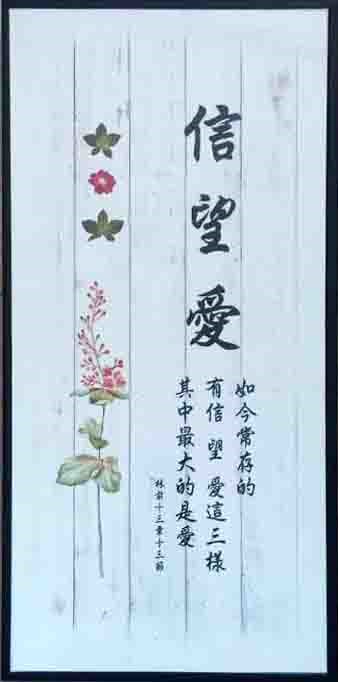 信望愛
如今常存的
有信望愛這三樣
其中最大的是愛
林前十三章十三節